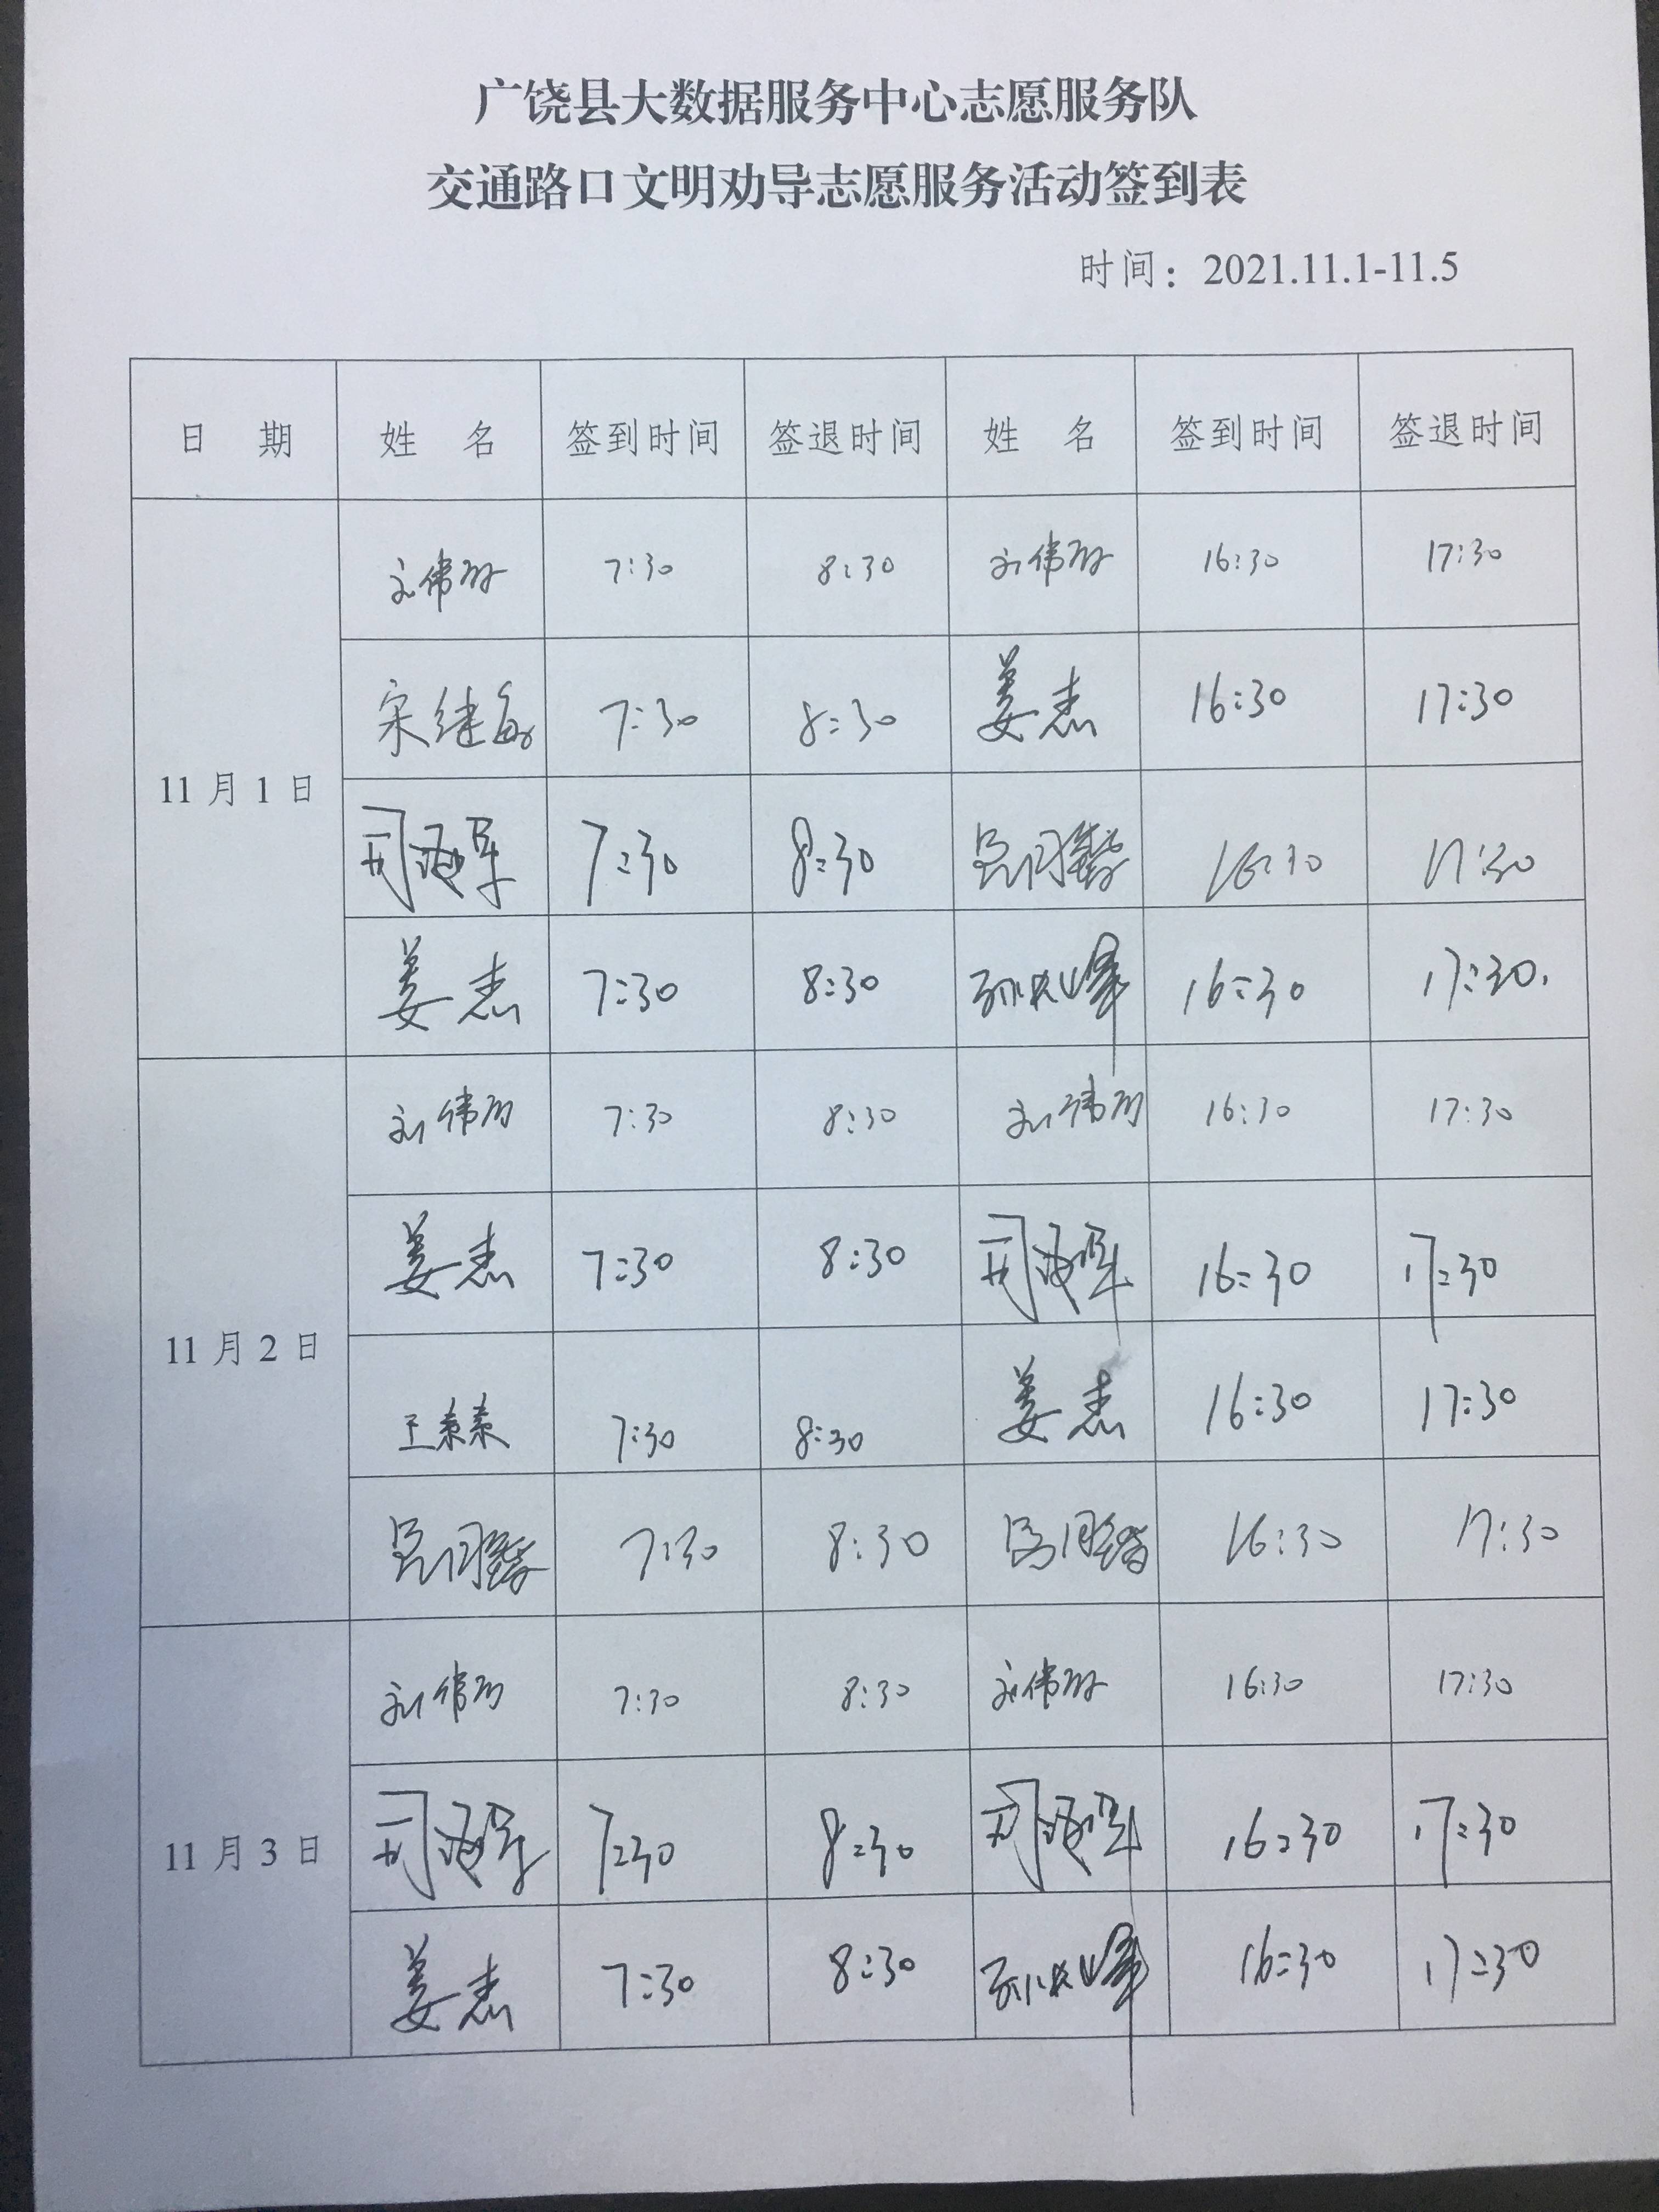 广饶县大数据服务中心志愿服务队
交通路口文明劝导志愿服务活动签到表
时间：2021.11.1-11.5
日 期 姓 名 签到时间 签退时间 姓 名 签到时间 签退时间
11月1日
刘伟 7:30 8:30 刘伟 16:30 17:30
宋继海 7:30 8:30 姜杰 16:30 17:30
司海军 7:30 8:30 16:30 17:30
姜杰 7:30 8:30 峰 16:30 17:30.
11月2日
刘伟 7:30 8:30 刘伟 16:30 17:30
姜杰 7:30 8:30 司海军 16:30 17:30
王素素 7:30 8:30 姜杰 16:30 17:30
7:30 8:30 16:30 17:30
11月3日
刘伟 7:30 8:30 刘伟 16:30 17:30
司海军 7:30 8:30 司海军 16:30 17:30
姜杰 7:30 8:30 峰 16:30 17:30